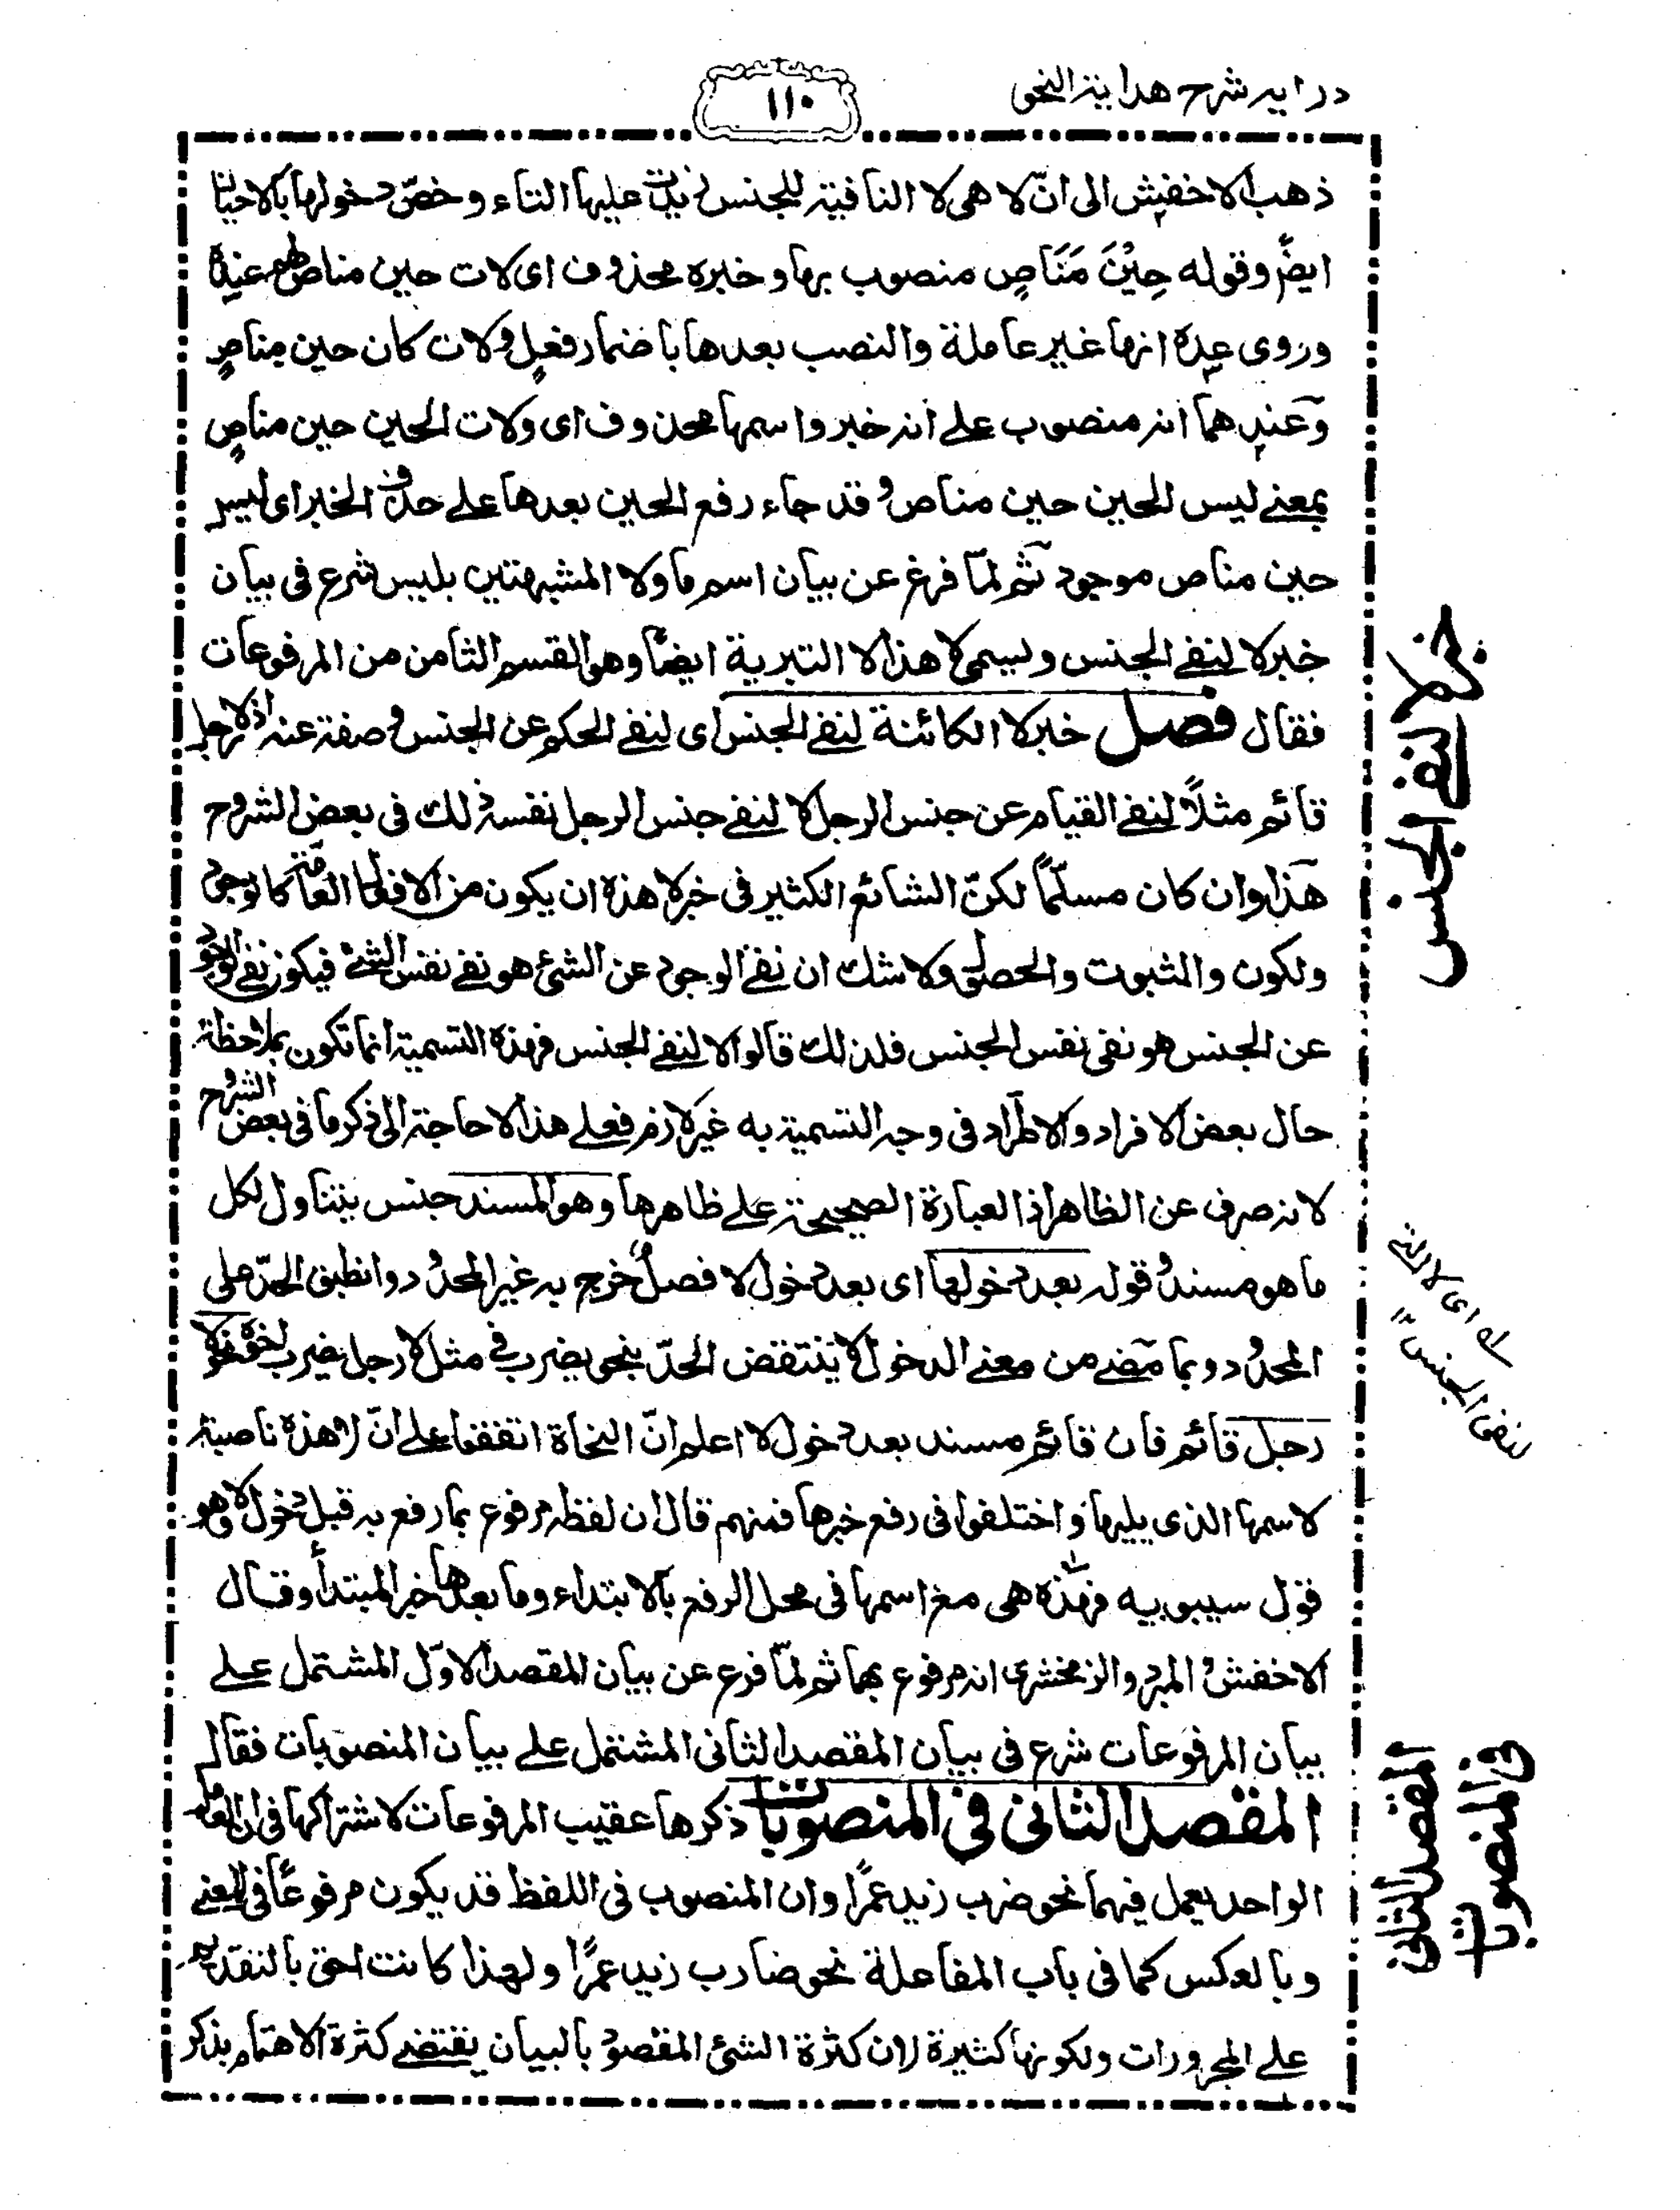 درايه شرح هداية النحو
١١٠
ذهب الاخفش الى انّ لا هى لا النافية للجنس زيدت عليها التاء و خصّ دخولها بالاحيان
ايضً وقوله حِيْنَ مَنَاصٍ منصوب بها و خبره محذوف اى لات حين مناص لهم عنده
وروى عنه انها غير عاملة والنصب بعدها باضمار فعل و لات كان حين مناصٍ
وعندهما انه منصوب على انه خبر واسمها محذوف اى ولات الحين حين مناصٍ
بمعنے ليس الحين حين مناص و قد جاء رفع الحين بعدها على حذف الخبر اى ليس
حين مناص موجود ثم لمّا فرغ عن بيان اسم ما ولا المشبهتين بليس شرع فى بيان
خبر لا لنفے الجنس ويسمى لا هذا لا التبرية ايضًا وهو القسم الثامن من المرفوعات
فقال فصل خبر لا الكائنة لنفے الجنس اى لنفے الحكم عن الجنس و صفته عنه اذ لا رجل
قائم مثلاً لنفے القيام عن جنس الرجل لا لنفے جنس الرجل نفسه ذلك فى بعض الشروح
هذا وان كان مسلّمًا لكنّ الشائع الكثير فى خبر لا هذه ان يكون من الافعال العامّة كالوجود
ولكون والثبوت والحصول ولا شك ان نفے الوجود عن الشئ هو نفے نفس الشئ فيكون نفے الوجود
عن الجنس هو نفى نفس الجنس فلذلك قالوا لا لنفے الجنس فهذه التسمية انما تكون بملاحظة
حال بعض الافراد والاطراد فى وجه التسمية به غير لازم فعلے هذا لا حاجة الى ذكر ما فى بعض الشروح
لانه صرف عن الظاهر اذ العبارة الصحيحة على ظاهرها وهو المسند جنس يتناول لكل
ما هو مسند و قوله بعد دخولها اى بعد دخول لا فصل خرج به غير المحدود و انطبق الحدّ على
المحدود و بما مضے من معنے الدخول لا ينتقض الحدّ بنحو يضرب فى مثل لا رجل يضرب اخوه نحو لا
رجل قائم فان قائم مسند بعد دخول لا اعلم انّ النحاة اتفقوا على انّ لا هذه ناصبة
لاسمها الذى يليها و اختلفوا فى رفع خبرها فمنهم قال ان لفظه مرفوع بما رفع به قبل دخول لا وهو
قول سيبويه فهذه هى مع اسمها فى محل الرفع بالابتداء وما بعدها خبر المبتدأ وقال
الاخفش و المبرد والزمخشرى انه مرفوع بها ثم لمّا فرع عن بيان المقصد الاوّل المشتمل على
بيان المرفوعات شرع فى بيان المقصد الثانى المشتمل على بيان المنصوبات فقال
المقصد الثانى فى المنصوبات ذكرها عقيب المرفوعات لاشتراكها فى ان العامل
الواحد يعمل فيهما نحو ضرب زيد عمرًا وان المنصوب فى اللفظ قد يكون مرفوعًا فى المعنے
وبالعكس كما فى باب المفاعلة نحو ضارب زيد عمرًا ولهذا كانت احق بالتقديم
على المجرورات ولكونها كثيرة لان كثرة الشئ المقصود بالبيان يقتضے كثرة الاهتمام بذكر
خبر لا لنفے الجنس
له اى لا التے
لنفى الجنس ١٢
المقصد الثانى
فى المنصوبات